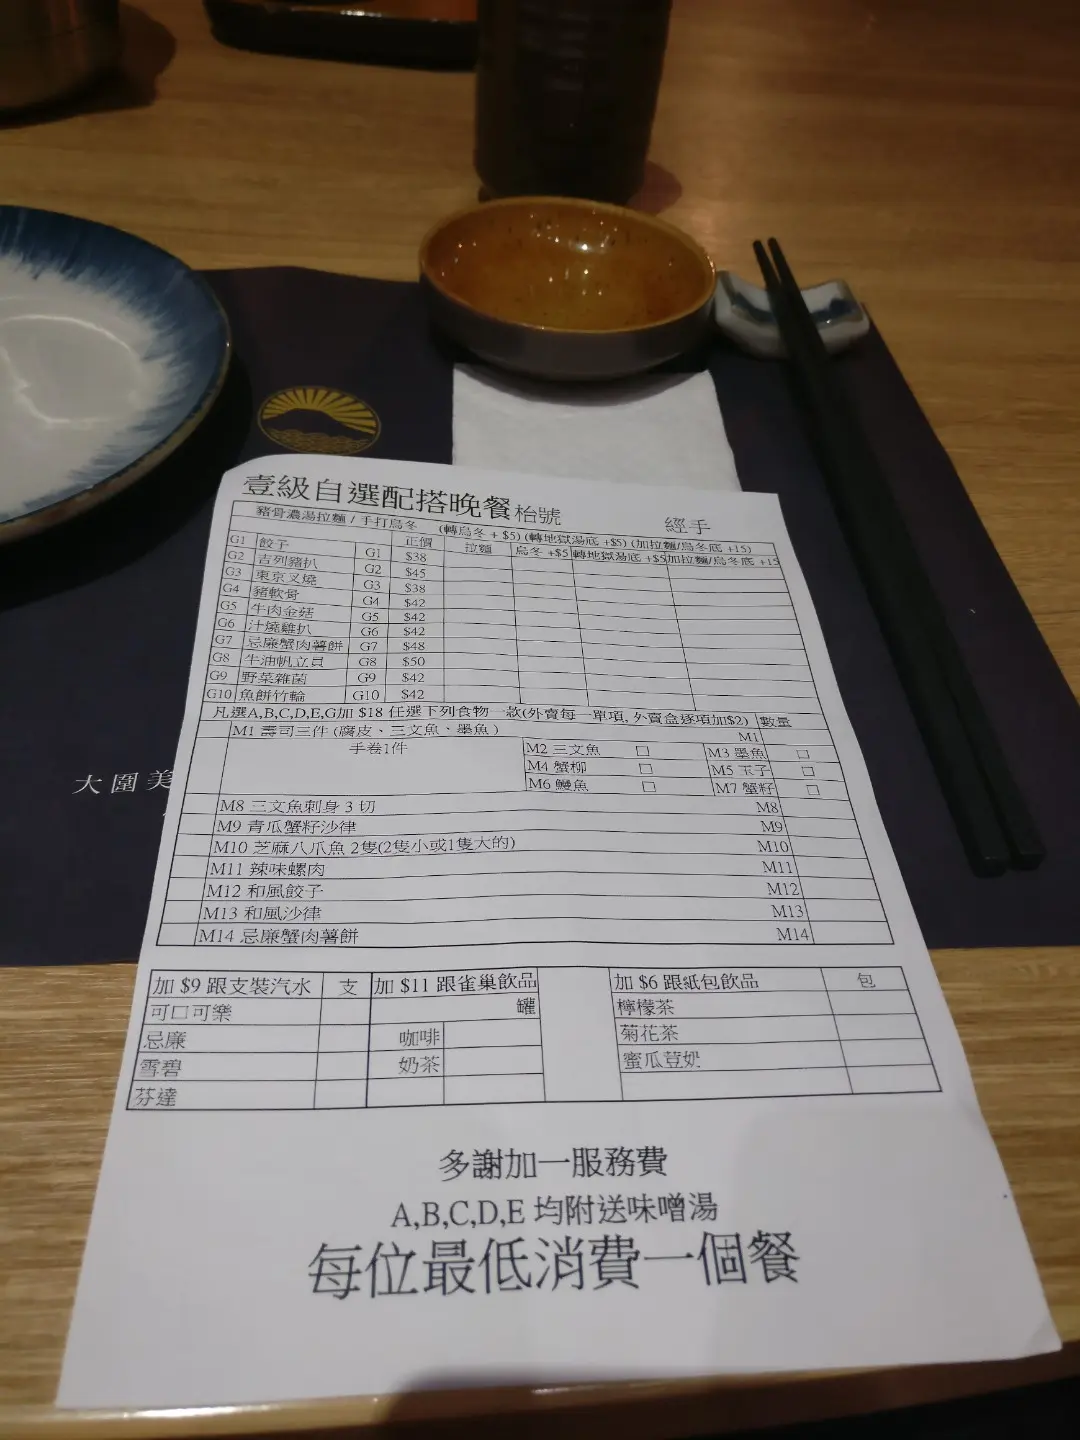 壹級自選配搭晚餐 枱號 經手
豬骨濃湯拉麵 / 手打烏冬 (轉烏冬 + $5) (轉地獄湯底 +$5) (加拉麵/烏冬底 +15)
正價 拉麵 烏冬 +$5 轉地獄湯底 +$5 加拉麵/烏冬底 +15
G1 餃子 G1 $38
G2 吉列豬扒 G2 $45
G3 東京叉燒 G3 $38
G4 豬軟骨 G4 $42
G5 牛肉金菇 G5 $42
G6 汁燒雞扒 G6 $42
G7 忌廉蟹肉薯餅 G7 $48
G8 牛油帆立貝 G8 $50
G9 野菜雜菌 G9 $42
G10 魚餅竹輪 G10 $42
凡選A,B,C,D,E,G加 $18 任選下列食物一款(外賣每一單項, 外賣盒逐項加$2) 數量
M1 壽司三件 (腐皮、三文魚、墨魚) M1
手卷1件 M2 三文魚 □ M3 墨魚 □
M4 蟹柳 □ M5 玉子 □
M6 鰻魚 □ M7 蟹籽 □
M8 三文魚刺身 3 切 M8
M9 青瓜蟹籽沙律 M9
M10 芝麻八爪魚 2隻(2隻小或1隻大的) M10
M11 辣味螺肉 M11
M12 和風餃子 M12
M13 和風沙律 M13
M14 忌廉蟹肉薯餅 M14
加 $9 跟支裝汽水 支 加 $11 跟雀巢飲品 罐 加 $6 跟紙包飲品 包
可口可樂 檸檬茶
忌廉 咖啡 菊花茶
雪碧 奶茶 蜜瓜荳奶
芬達
多謝加一服務費
A,B,C,D,E 均附送味噌湯
每位最低消費一個餐
大圍美